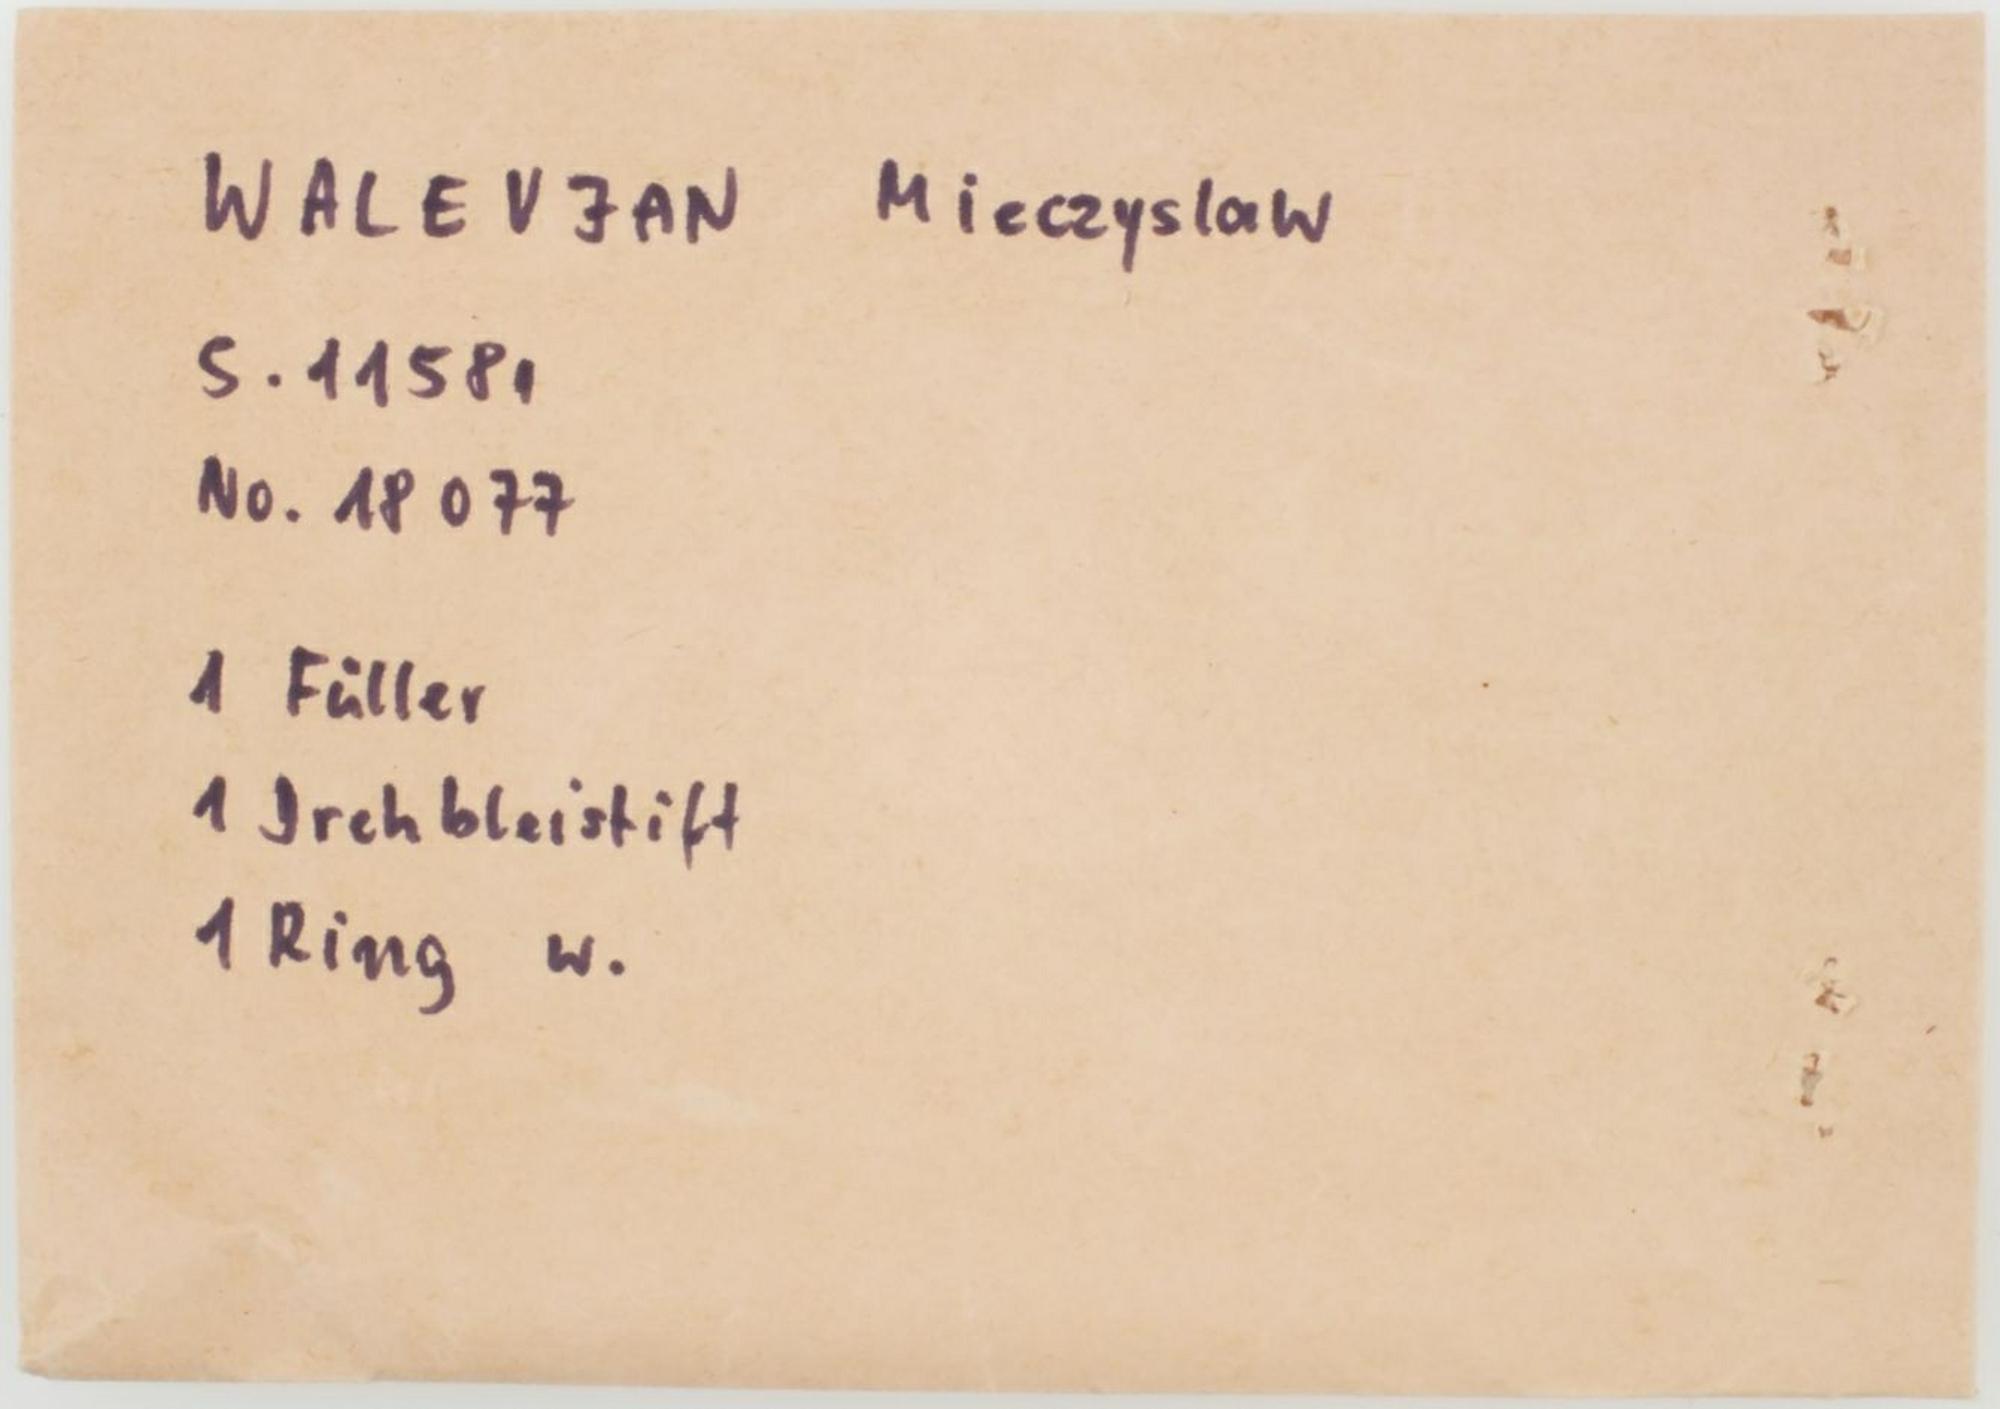 WALEVJAN Mieczyslaw
S. 11581
No. 18077
1 Füller
1 Drehbleistift
1 Ring w.